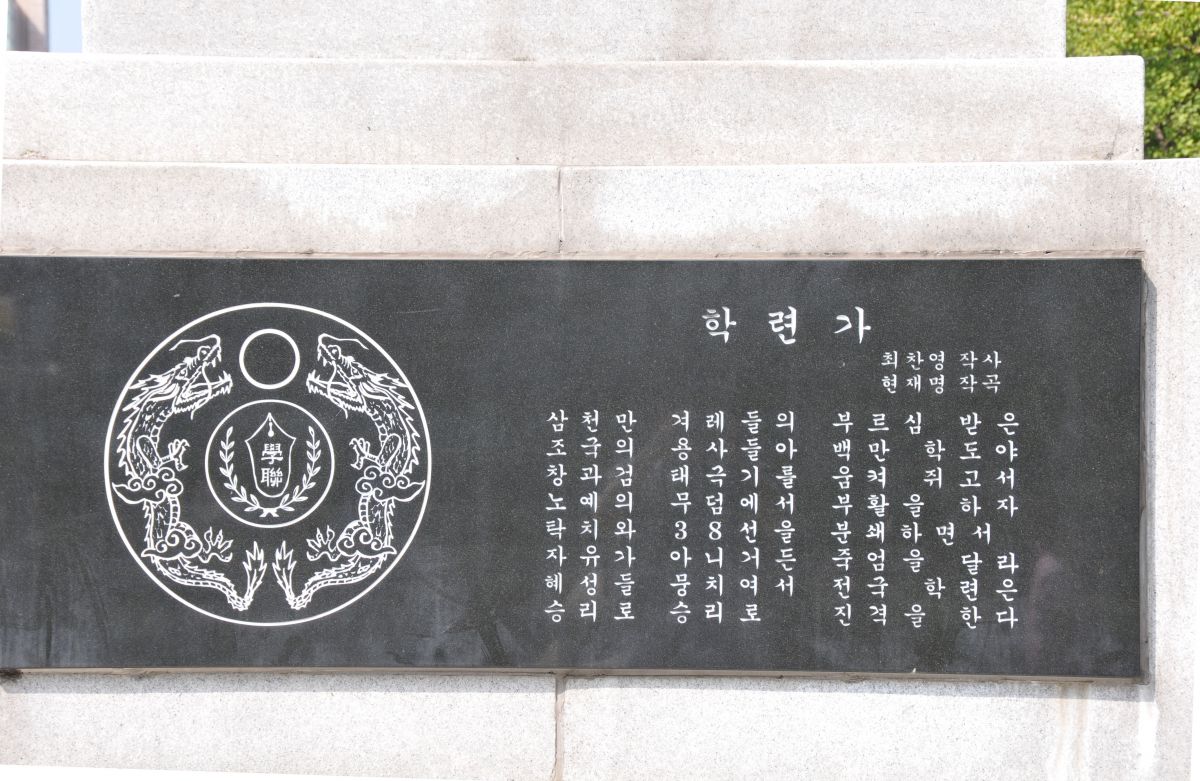 學
聯
학련가
최찬영 작사
현재명 작곡
삼천만 겨레들의 부르심 받은
조국의 용사들아 백만 학도야
창과검 태극기를 움켜 쥐고서
노예의 무덤에서 부활을 하자
탁치와 38선을 분쇄하면서
자유가 아니거든 죽엄을 달라
혜성들 뭉치여서 전국 학련은
승리로 승리로 진격을 한다